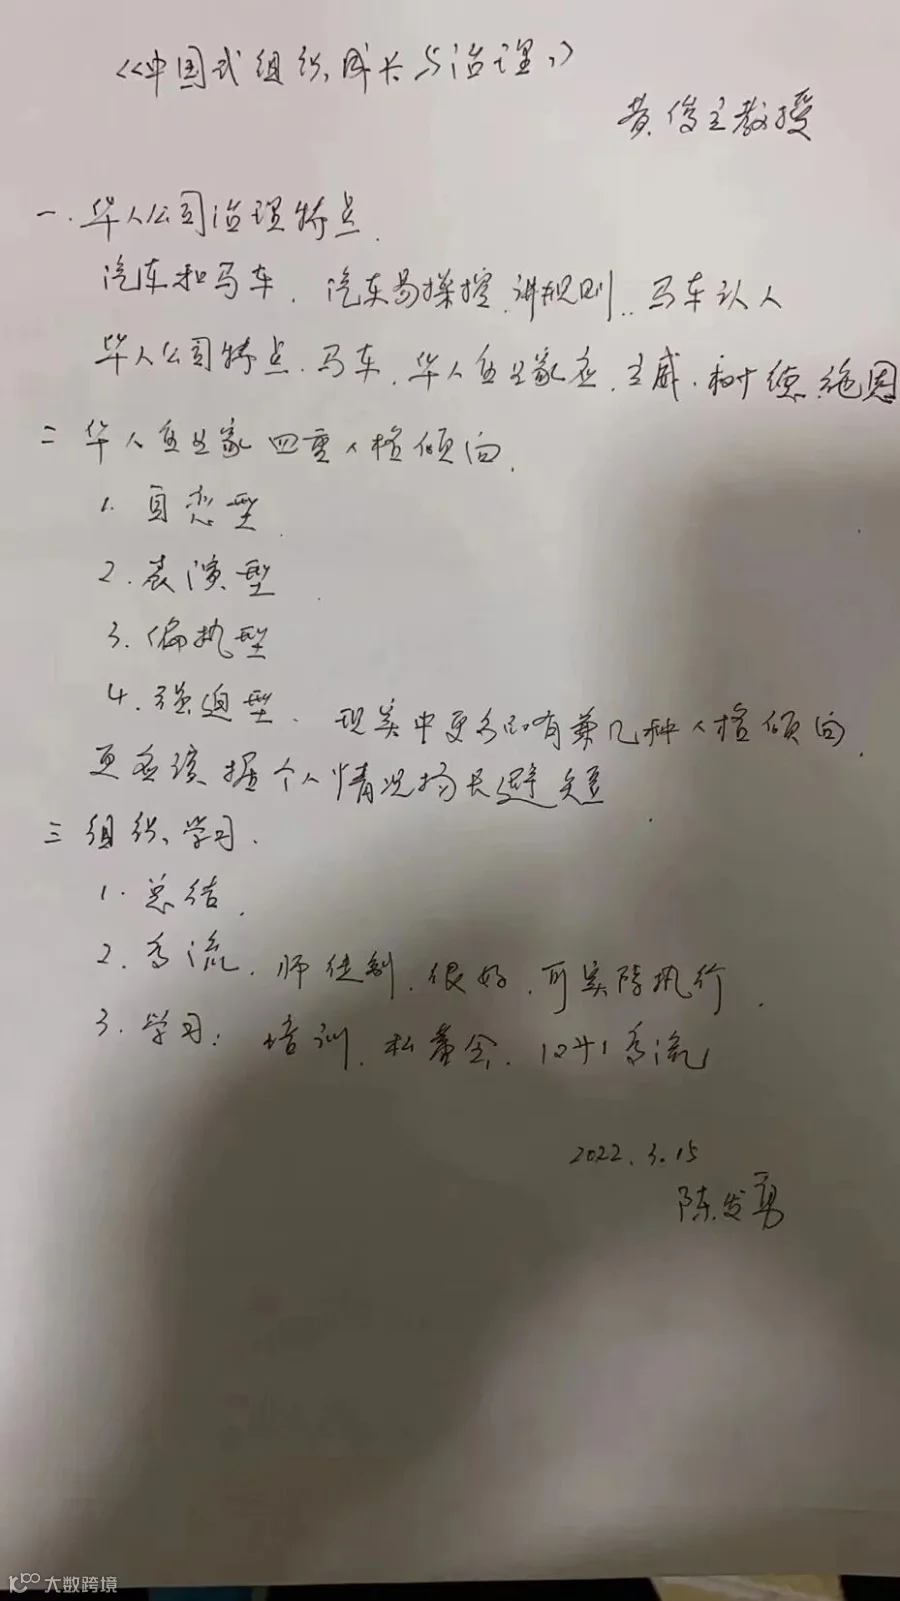 《中国式组织成长与治理》
黄俊立教授
一.华人公司治理特点.
汽车和马车.汽车易操控.讲规则..马车认人
华人公司特点.马车.华人企业家应.立威.树德施恩
二 华人企业家四重人格倾向.
1.自恋型.
2.表演型.
3.偏执型
4.强迫型.现实中更多的有兼几种人格倾向.
更应该据个人情况扬长避短.
三 组织学习.
1.总结.
2.交流.师徒制.很好.可实际执行.
3.学习:培训.私董会.1对1交流
2022.3.15
陈发勇
大数跨境